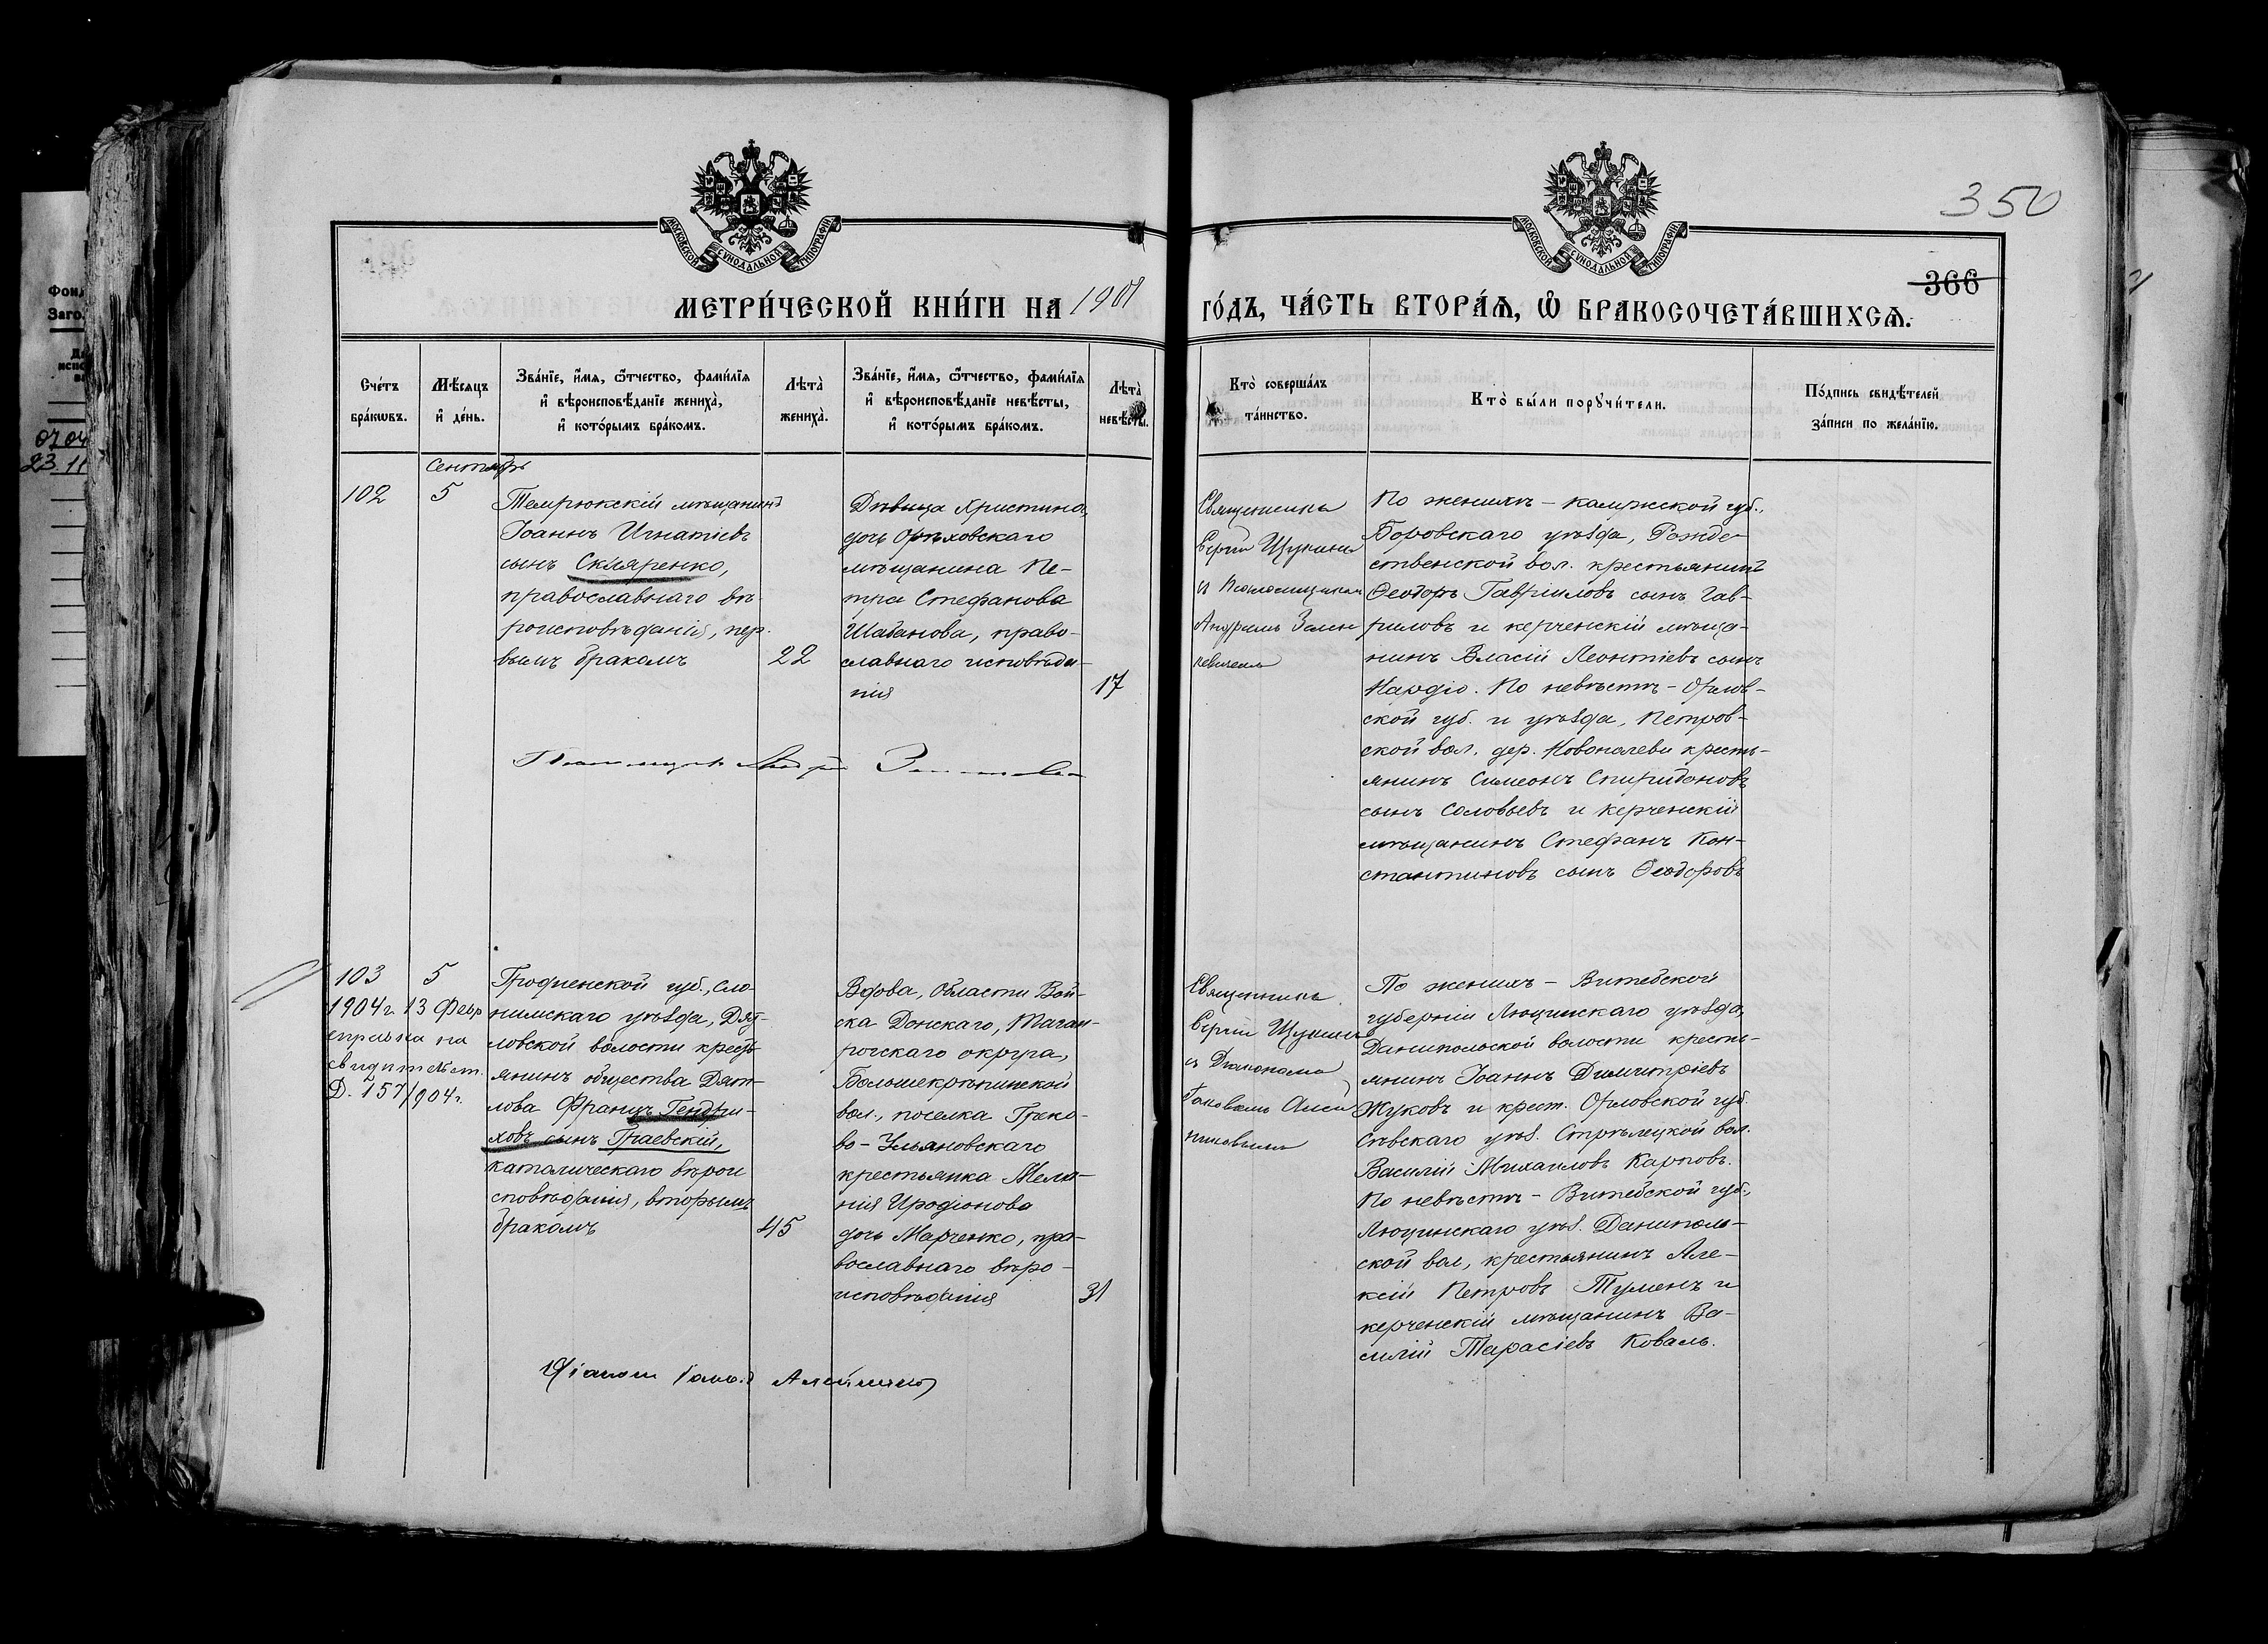 350
366
МОСКОВСКОЙ СѴНОДАЛЬНОЙ ТИПОГРАФІИ
МОСКОВСКОЙ СѴНОДАЛЬНОЙ ТИПОГРАФІИ
МЕТРИ́ЧЕСКОЙ КНИ́ГИ НА 1901
ГО́ДЪ, ЧА́СТЬ ВТОРА́Ѧ, Ѽ БРАКОСОЧЕТА́ВШИХСѦ.
Сче́тъ
бра́кѡвъ.
Мѣ́сѧцъ
и҆ де́нь.
Зва́нїе, и҆́мѧ, ѻ҆́тчество, фами́лїѧ
и҆ вѣроисповѣ́данїе жениха̀,
и҆ кото́рымъ бра́комъ.
Лѣта̀
жениха̀.
Зва́нїе, и҆́мѧ, ѻ҆́тчество, фами́лїѧ
и҆ вѣроисповѣ́данїе невѣ́сты,
и҆ кото́рымъ бра́комъ.
Лѣта̀
невѣ́сты.
Кто̀ соверша́лъ
та́инство.
Кто̀ бы́ли порꙋчи́тели.
По́дпись свидѣ́телей
за́писи по жела́нїю.
Сентябрь
102
5
Темрюкскій мѣщанинъ
Іоаннъ Игнатіевъ
сынъ Скляренко,
православнаго вѣ-
роисповѣданія, пер-
вымъ бракомъ
22
Дѣвица Христина,
дочь Орѣховскаго
мѣщанина Пе-
тра Стефанова
Шабанова, право-
славнаго исповѣда-
нія
17
Священникъ
Сергій Щукинъ
и Псаломщикомъ
По женихѣ – Калужской губ.,
Боровскаго уѣзда, Рожде-
ственской вол. крестьянинъ
Ѳеодоръ Гавріиловъ сынъ Гав-
риловъ и керченскій мѣща-
нинъ Власій Леонтіевъ сынъ
По невѣстѣ – Орлов-
ской губ. и уѣзда, Петров-
ской вол. дер. кресть-
янинъ Симеонъ Спиридоновъ
сынъ Соловьевъ и керченскій
мѣщанинъ Стефанъ Кон-
стантиновъ сынъ Ѳеодоровъ
103
5
1904 г. 13 Февр
справка на
свидѣтельст.
Д. 157/904 г.
Гродненской губ., Сло-
нимскаго уѣзда, Дят-
ловской волости кресть-
янинъ общества Дят-
лова Францъ Гендри-
ховъ сынъ Граевскій,
католическаго вѣрои
сповѣданія, вторымъ
бракомъ
45
Вдова, Области Вой-
ска Донскаго, Таган-
рогскаго округа,
Большекрѣпинской
вол., поселка Греко-
во-Ульяновскаго
крестьянка Мела-
нія Иродіонова
дочь Марченко, пра-
вославнаго вѣро-
исповѣданія
31
Священникъ
Сергій Щукинъ
и Діакономъ
По женихѣ – Витебской
губерніи Люцинскаго уѣзда,
Данипольской волости кресть-
янинъ Іоаннъ Димитріевъ
Жуковъ и крест. Орловской губ.
Сѣвскаго уѣз. Стрѣлецкой вол.
Василій Михаиловъ Карповъ.
По невѣстѣ – Витебской губ.,
Люцинскаго уѣз. Даниполь-
ской вол, крестьянинъ Але-
ксій Петровъ Туменъ и
керченскій мѣщанинъ Ва-
силій Тарасіевъ Коваль.